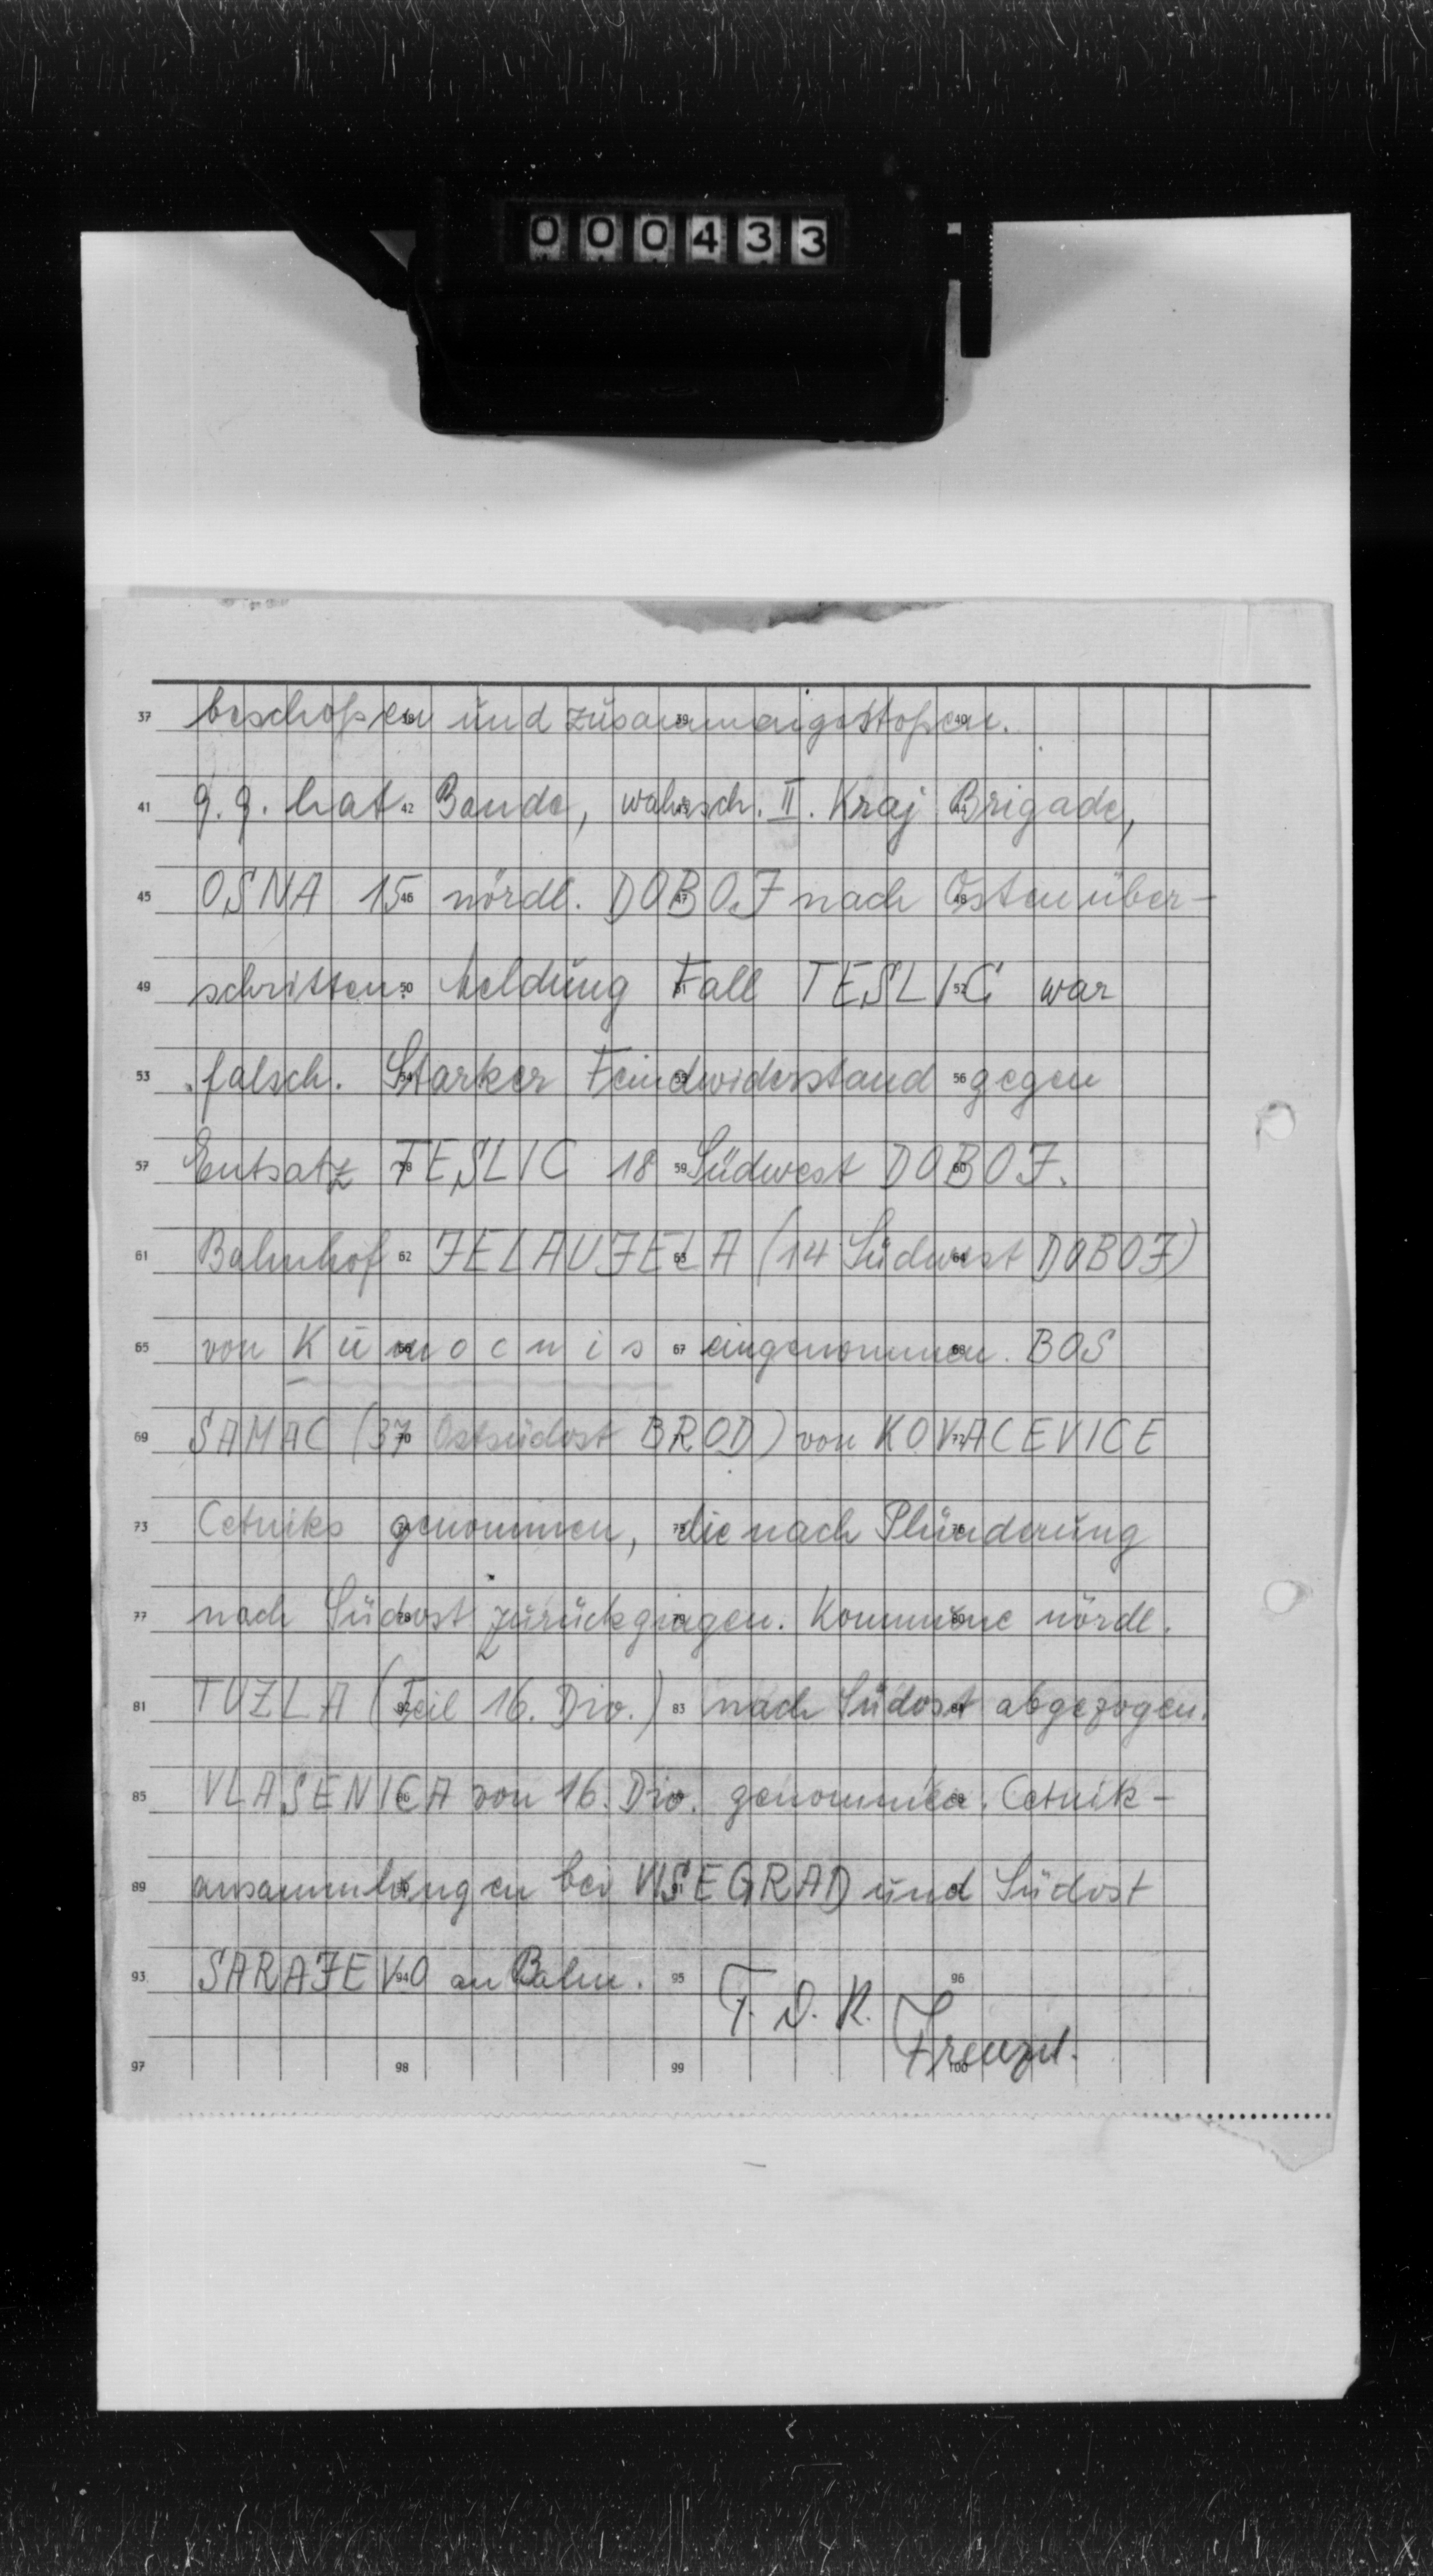 000433
37 beschoßen 38 und zusammengestoßen. 39 40
41 g.g. hat 42 Bande, wahrsch. 43 II. Kraj Brigade, 44
45 OSNA 15 46 nördl. DOBOJ 47 nach Osten über- 48
49 schritten. 50 Meldung Fall 51 TESLIC 52 war
53 falsch. Starker 54 Feindwiderstand 55 56 gegen
57 Entsatz TESLIC 58 18 59 Südwest DOBOJ. 60
61 Bahnhof 62 JELAUJELA 63 (14 Südwest 64 DOBOJ)
65 von Kumocnis 66 67 eingenommen. 68 BOS
69 SAMAC (37 70 Ostsüdost BROD) 71 von KOVACEVICE 72
73 Cetniks genommen, 74 75 die nach Plünderung 76
77 nach Südost 78 zurückgingen. 79 Kommune 80 nördl.
81 TUZLA (Teil 82 16. Div.) 83 nach Südost 84 abgezogen.
85 VLASENICA 86 von 16. Div. 87 genommen. 88 Cetnik-
89 ansammlungen 90 bei VISEGRAD 91 und 92 Südost
93 SARAJEVO 94 an Bahn. 95 96
T. D. R.
Frenzel.
97 98 99 100